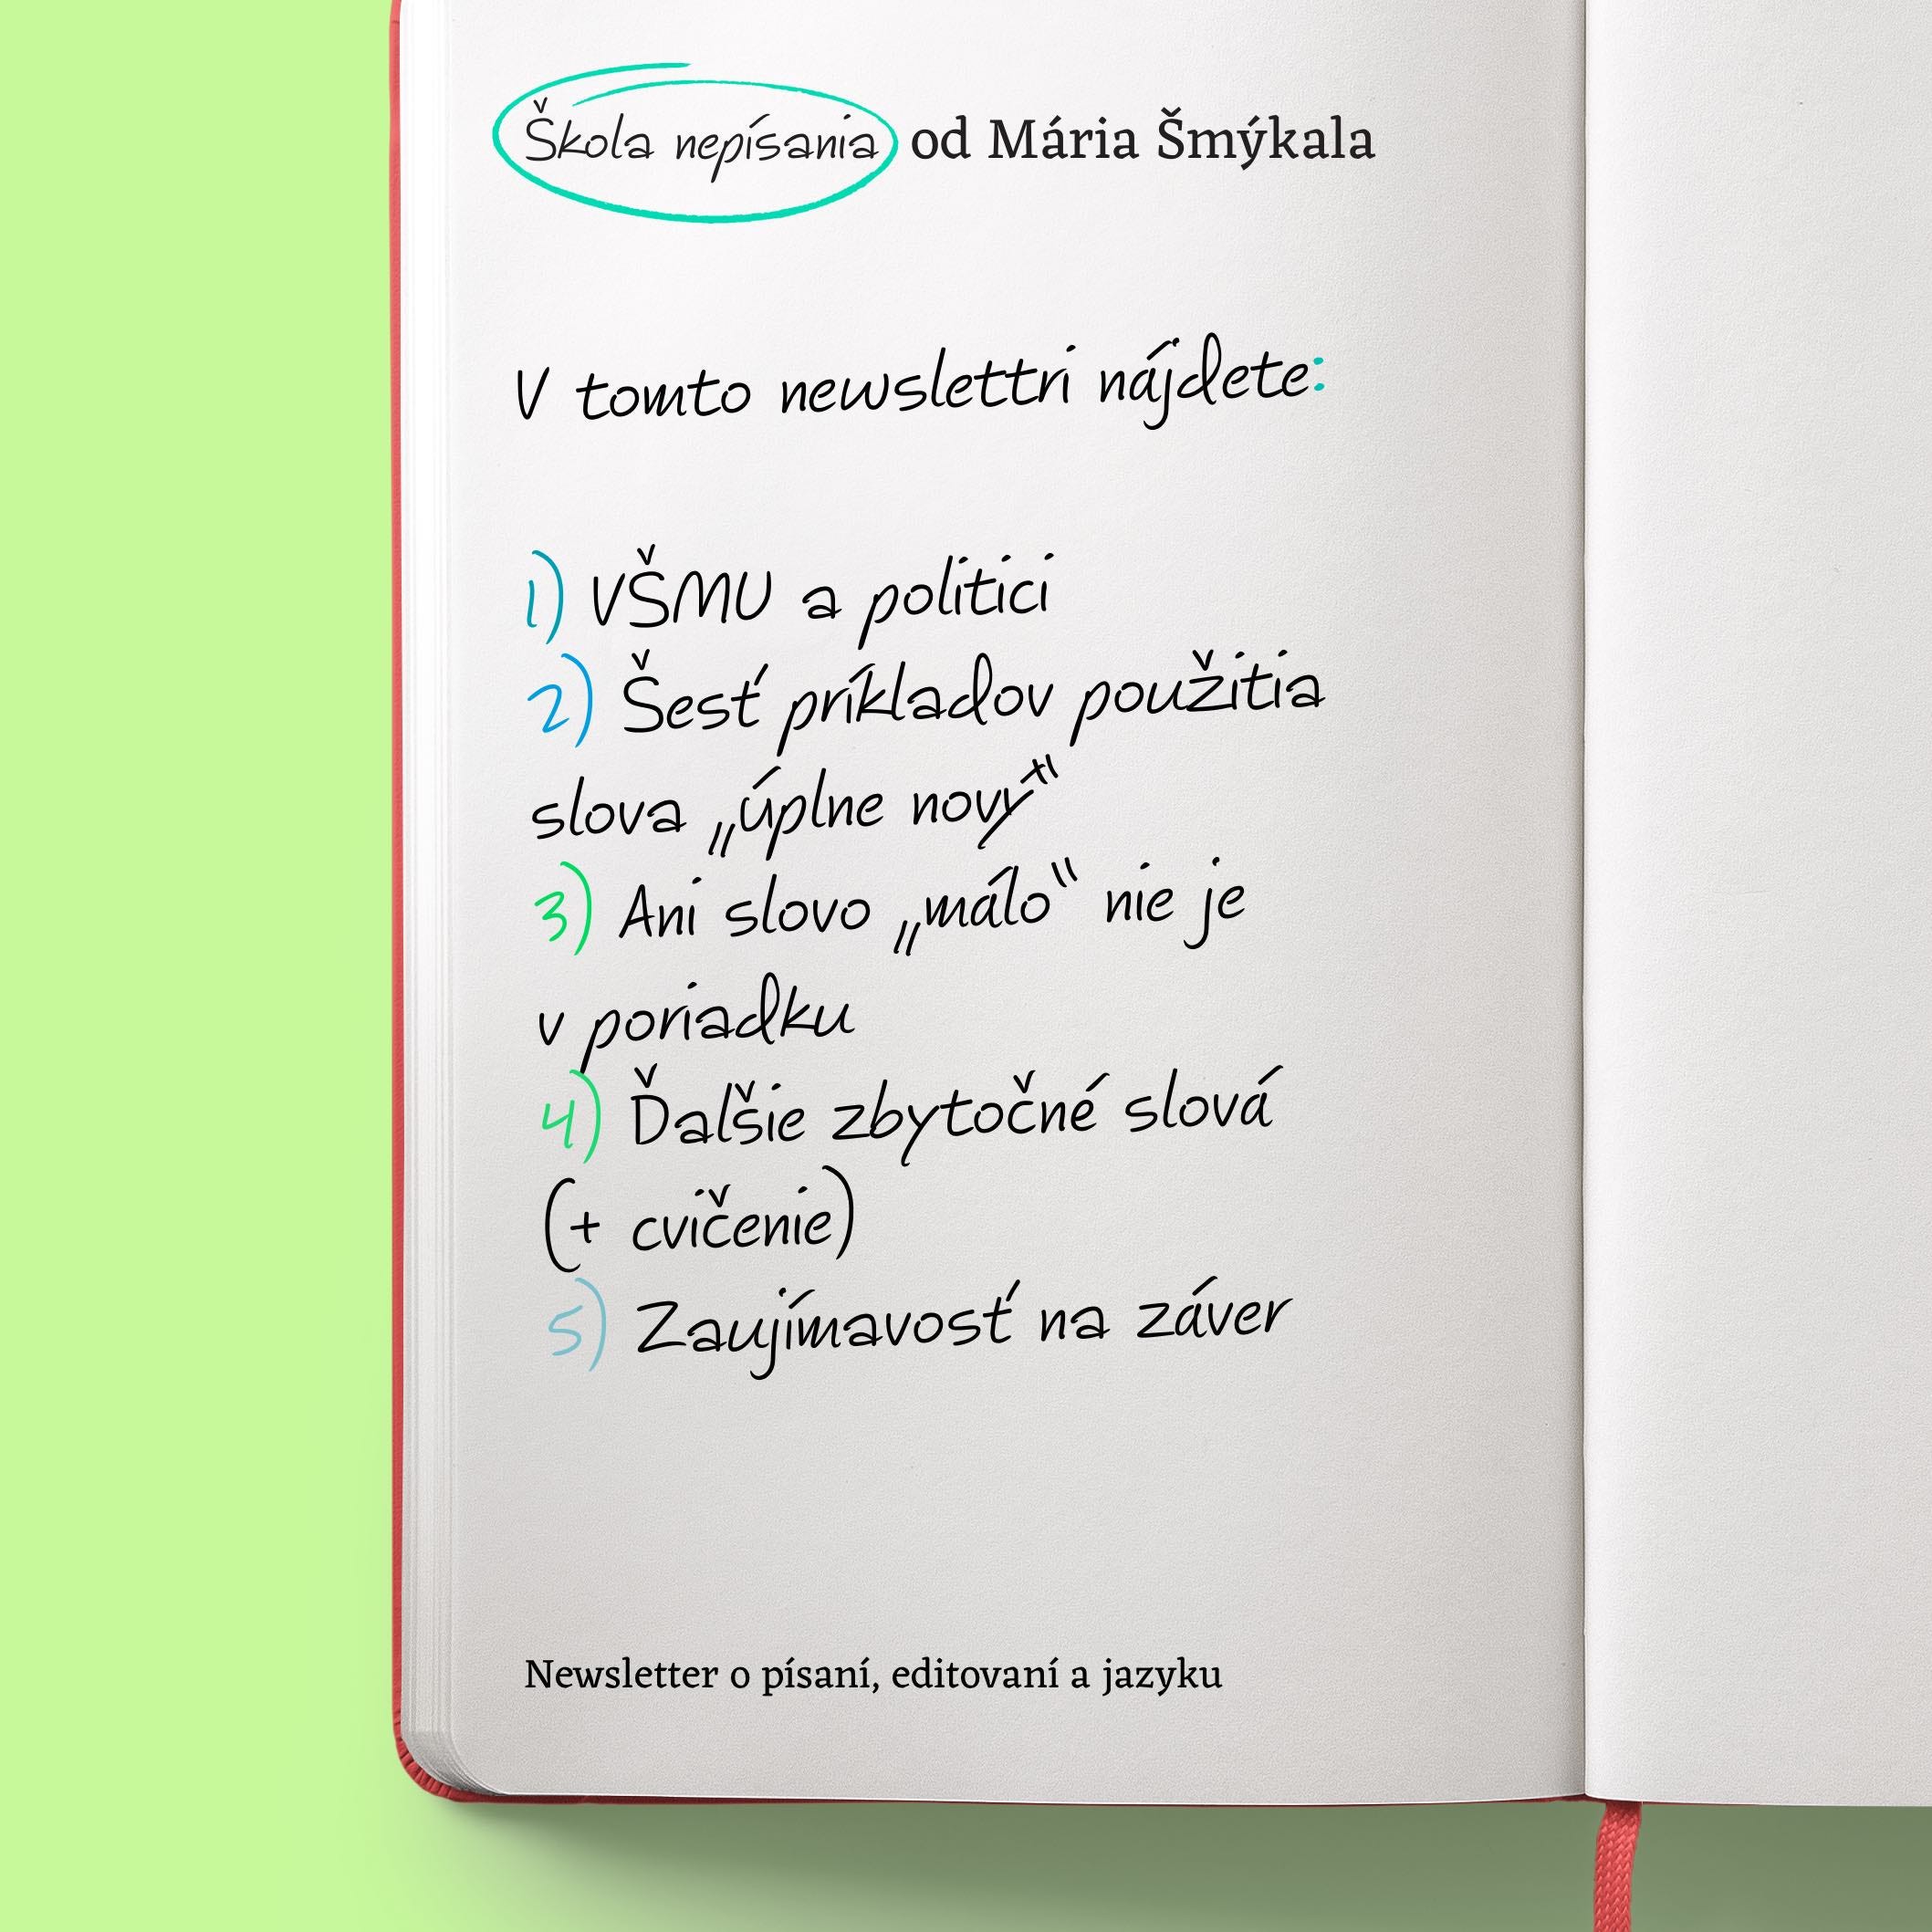 Škola nepísania od Mária Šmýkala
V tomto newslettri nájdete:
1) VŠMU a politici
2) Šesť príkladov použitia
slova „úplne nový“
3) Ani slovo „málo“ nie je
v poriadku
4) Ďalšie zbytočné slová
(+ cvičenie)
5) Zaujímavosť na záver
Newsletter o písaní, editovaní a jazyku